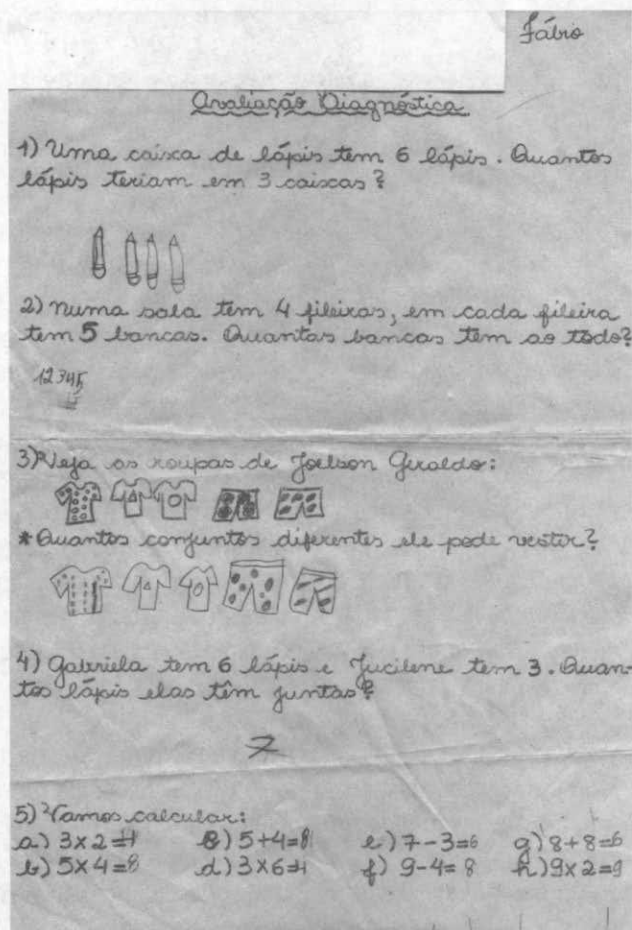 Fábio
Avaliação Diagnóstica
1) Uma caixa de lápis tem 6 lápis. Quantos
lápis teriam em 3 caixas?
2) Numa sala tem 4 fileiras, em cada fileira
tem 5 bancas. Quantas bancas tem ao todo?
12345
3) Veja as roupas de Joelson Geraldo:
* Quantos conjuntos diferentes ele pode vestir?
4) Gabriela tem 6 lápis e Jucilene tem 3. Quan-
tos lápis elas têm juntas?
7
5) Vamos calcular:
a) 3x2=4 5+4=8 e) 7-3=6 g) 8+8=6
b) 5x4=8 d) 3x6=4 f) 9-4=8 h) 9x2=9